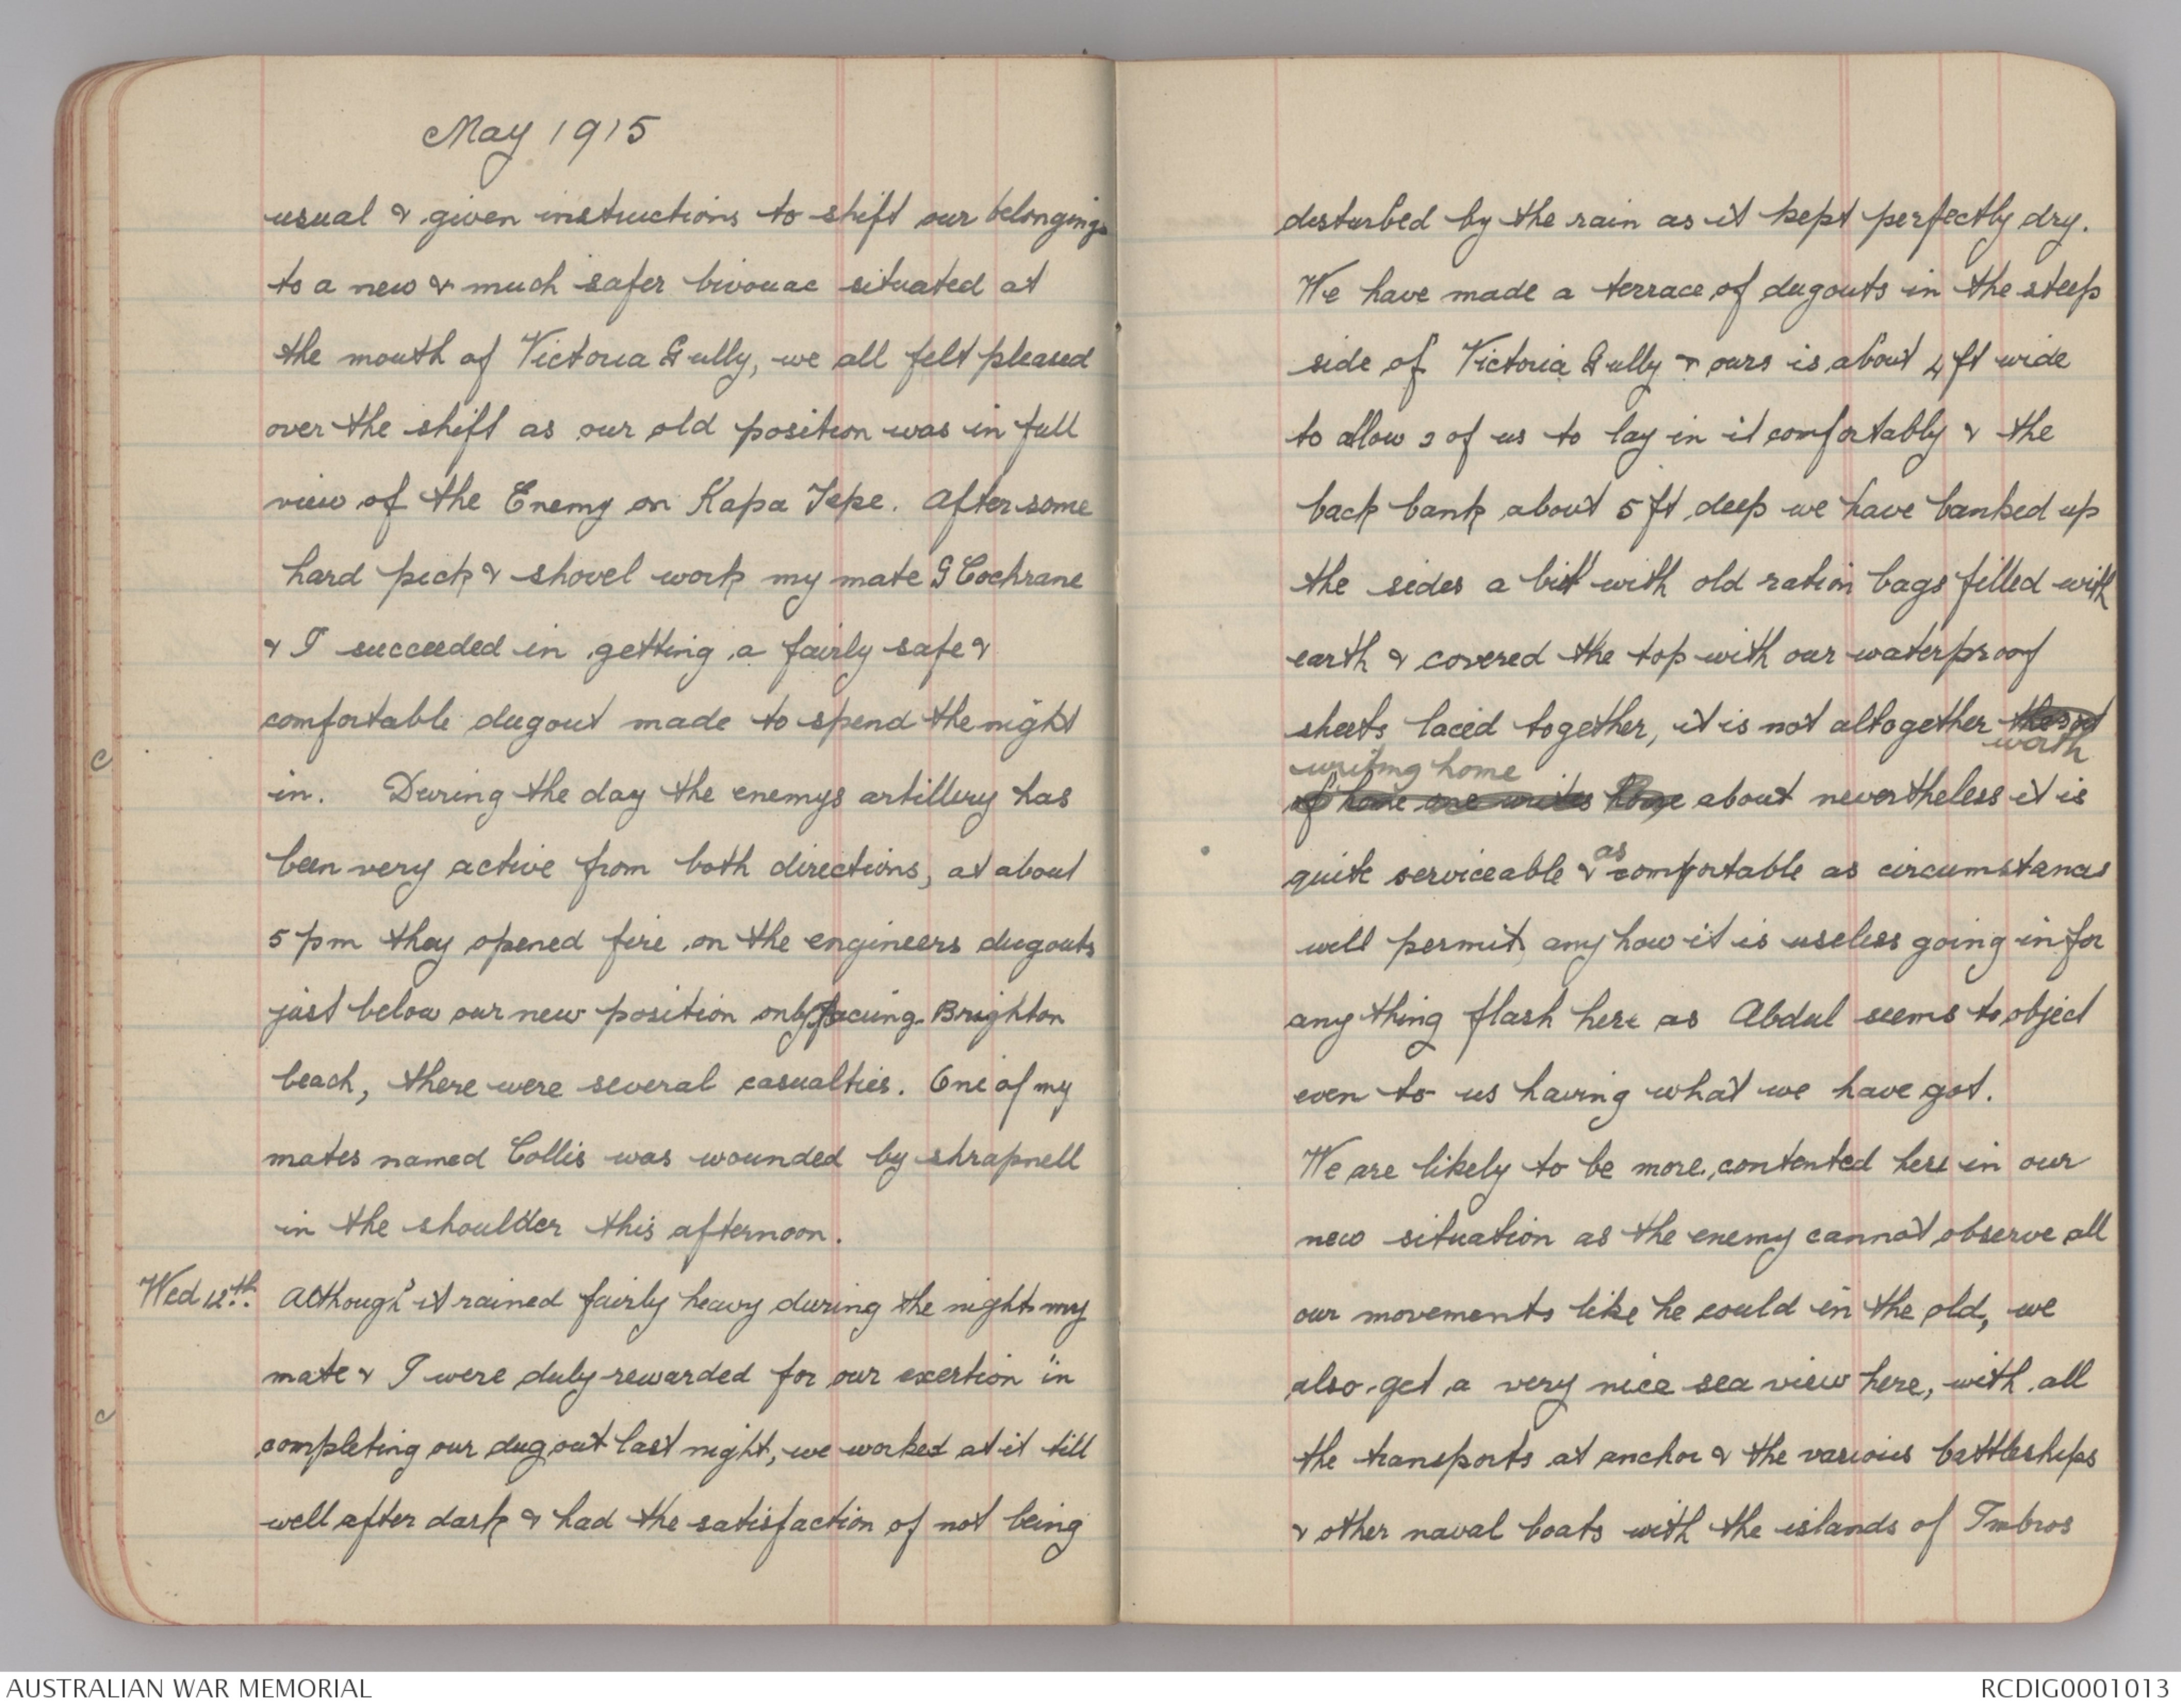 May 1915
usual & given instructions to shift our belongings
to a new & much safer bivouac situated at
the mouth of Victoria Gully, we all felt pleased
over the shift as our old position was in full
view of the Enemy on Kapa Tepe. After some
hard pick & shovel work my mate G Cochrane
& I succeeded in getting a fairly safe &
comfortable dugout made to spend the night
in. During the day the enemys artillery has
been very active from both directions, at about
5 pm they opened fire on the engineers dugouts
just below our new position only facing Brighton
beach, there were several casualties. One of my
mates named Collis was wounded by shrapnell
in the shoulder this afternoon.
Wed 12th. Although it rained fairly heavy during the night my
mate & I were duly rewarded for our exertion in
completing our dugout last night, we worked at it till
well after dark & had the satisfaction of not being
disturbed by the rain as it kept perfectly dry.
We have made a terrace of dugouts in the steep
side of Victoria Gully & ours is about 4 ft wide
to allow 2 of us to lay in it comfortably & the
back bank about 5 ft deep we have banked up
the sides a bit with old ration bags filled with
earth & covered the top with our waterproof
sheets laced together, it is not altogether
worth
writing home
of home one writes home about nevertheless it is
as
quite serviceable & comfortable as circumstances
will permit, any how it is useless going in for
any thing flash here as Abdul seems to object
even to us having what we have got.
We are likely to be more contented here in our
new situation as the enemy cannot observe all
our movements like he could in the old, we
also get a very nice sea view here, with all
the transports at anchor & the various battleships
& other naval boats with the islands of Imbros
AUSTRALIAN WAR MEMORIAL
RCDIG0001013